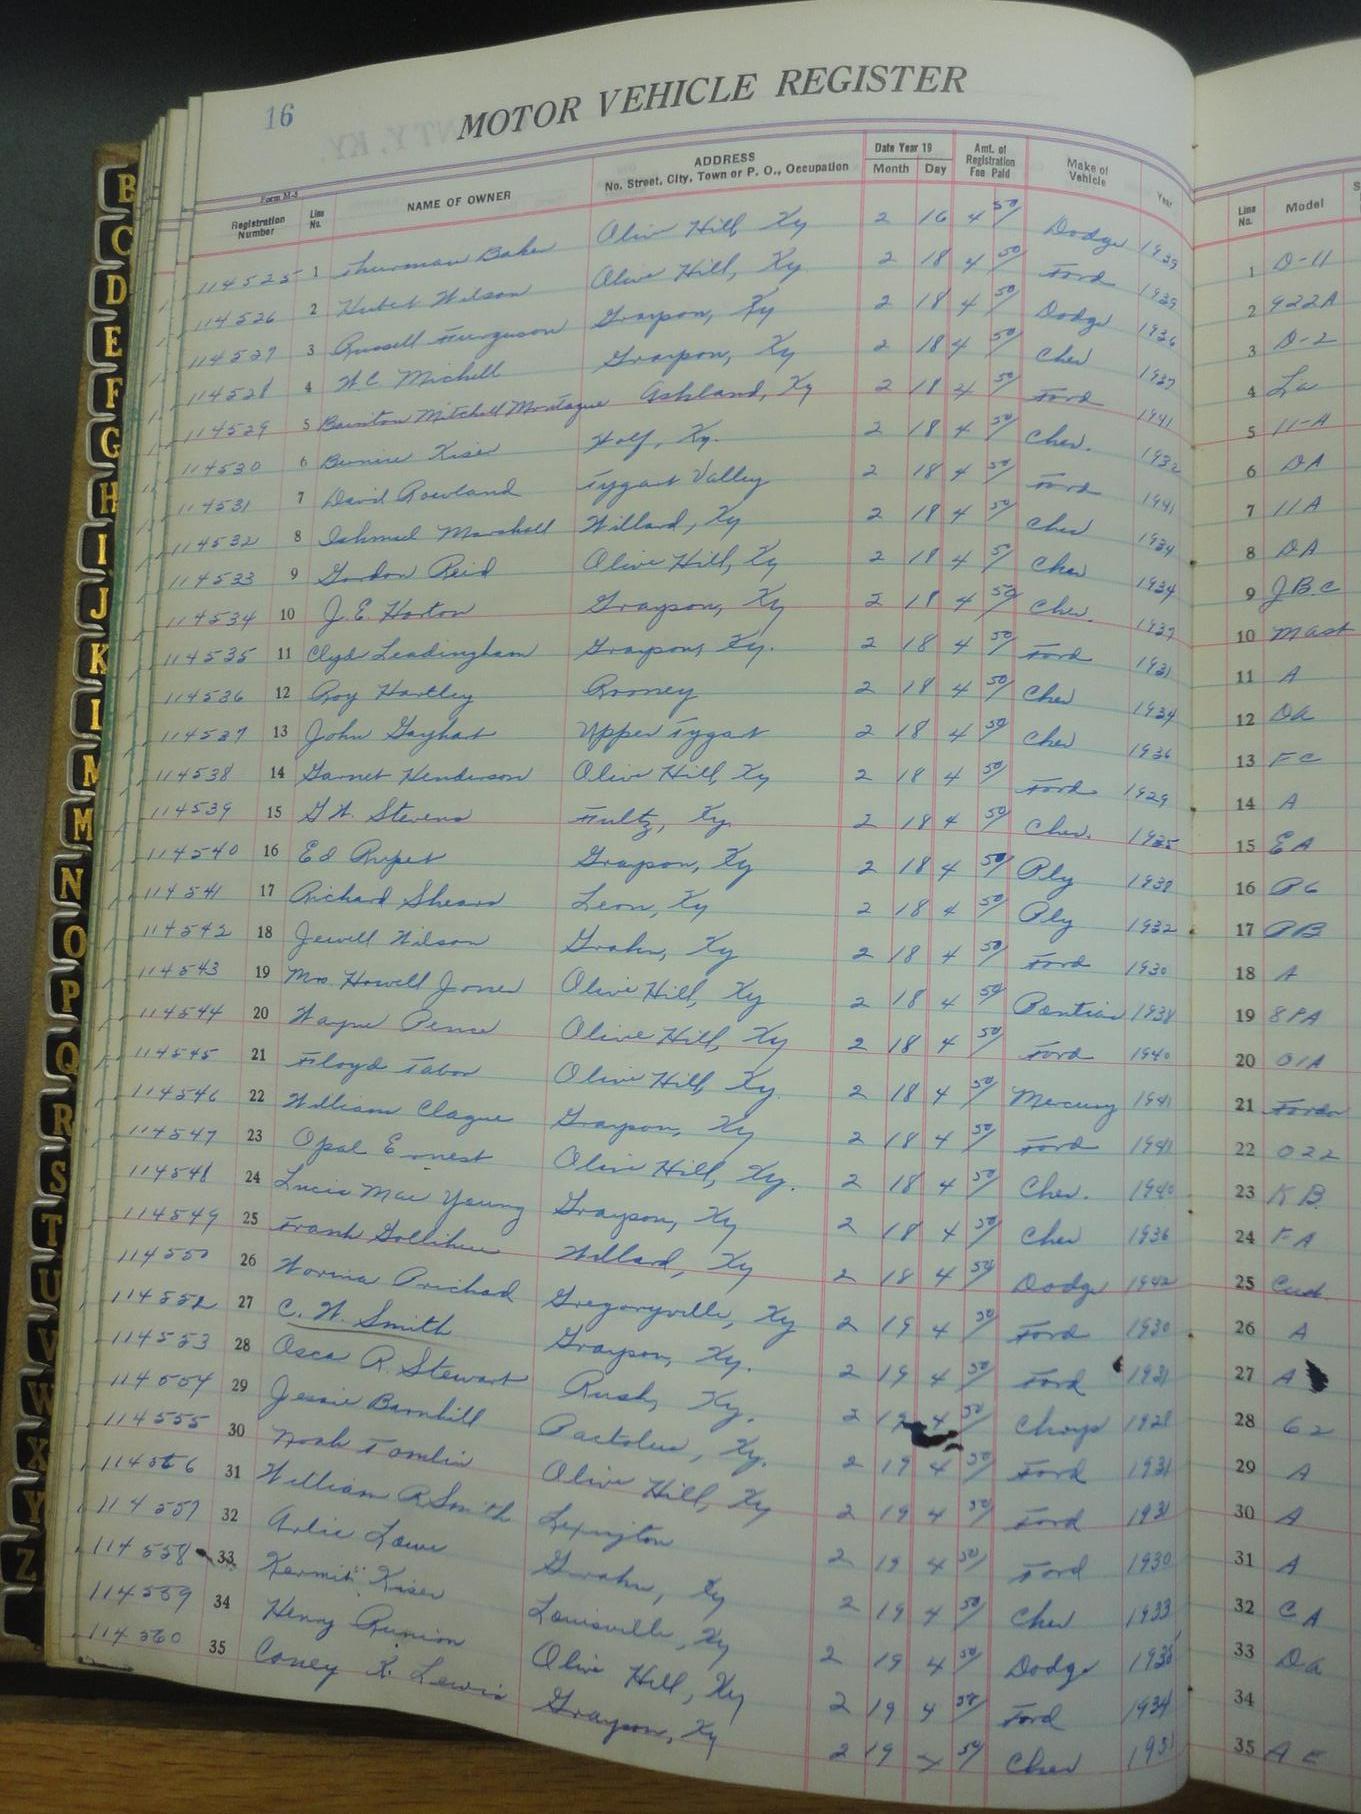 16
MOTOR VEHICLE REGISTER
Form M-5
Registration Number Line No. NAME OF OWNER ADDRESS No. Street, City, Town or P. O., Occupation Date Year 19 Month Day Amt. of Registration Fee Paid Make of Vehicle Year Line No. Model
114525 1 Thurman Baker Olive Hill, Ky 2 16 4 50/ Dodge 1939 1 D-11
114526 2 Hubert Wilson Olive Hill, Ky 2 18 4 50/ Ford 1939 2 922A
114527 3 Russell Furguson Grayson, Ky 2 18 4 50/ Dodge 1936 3 D-2
114528 4 W.C. Michell Grayson, Ky 2 18 4 50/ Chev 1937 4 La
114529 5 Mitchell Montague Ashland, Ky 2 18 4 50/ Ford 1941 5 11-A
114530 6 Kiser Ky. 2 18 4 50/ Chev. 1932 6 DA
114531 7 David Rowland Tygart Valley 2 18 4 50/ Ford 1941 7 11A
114532 8 Ishmael Marshall Willard, Ky 2 18 4 50/ Chev 1934 8 DA
114533 9 Gordon Reid Olive Hill, Ky 2 18 4 50/ Chev 1934 9 JBC
114534 10 J.E. Horton Grayson, Ky 2 18 4 50/ Chev. 1937 10 Mast
114535 11 Clyde Leadingham Grayson, Ky. 2 18 4 50/ Ford 1931 11 A
114536 12 Roy Hartley Rooney 2 18 4 50/ Chev 1934 12 Da
114537 13 John Gayhart Upper Tygart 2 18 4 50/ Chev 1936 13 FC
114538 14 Garnet Henderson Olive Hill, Ky 2 18 4 50/ Ford 1929 14 A
114539 15 G.W. Stevens Fultz, Ky. 2 18 4 50/ Chev. 1935 15 EA
114540 16 Ed Rupert Grayson, Ky 2 18 4 50/ Ply 1938 16 P6
114541 17 Richard Sheard Leon, Ky 2 18 4 50/ Ply 1932 17 PB
114542 18 Jewell Wilson Grahn, Ky 2 18 4 50/ Ford 1930 18 A
114543 19 Mrs. Howell Jones Olive Hill, Ky 2 18 4 50/ Pontiac 1938 19 8PA
114544 20 Wayne Pence Olive Hill, Ky 2 18 4 50/ Ford 1940 20 01A
114545 21 Floyd Tabor Olive Hill, Ky. 2 18 4 50/ Mercury 1941 21 Fordor
114546 22 William Clague Grayson, Ky 2 18 4 50/ Ford 1941 22 022
114547 23 Opal Ernest Olive Hill, Ky. 2 18 4 50/ Chev. 1940 23 KB
114548 24 Lucie Mae Young Grayson, Ky 2 18 4 50/ Chev 1936 24 FA
114549 25 Frank Gollihue Willard, Ky 2 18 4 50/ Dodge 1942 25 Cust.
114550 26 Norma Prichard Gregoryville, Ky 2 19 4 50/ Ford 1930 26 A
114552 27 C. W. Smith Grayson, Ky. 2 19 4 50/ Ford 1931 27 A
114553 28 Oscar R. Stewart Rush, Ky. 2 19 4 50/ Chrys 1928 28 62
114554 29 Jessie Barnhill Pactolus, Ky. 2 19 4 50/ Ford 1931 29 A
114555 30 Noah Tomlin Olive Hill, Ky 2 19 4 50/ Ford 1931 30 A
114556 31 William R Smith Lexington 2 19 4 50/ Ford 1930 31 A
114557 32 Arlie Lowe Grahn, Ky 2 19 4 50/ Chev 1933 32 CA
114558 33 Kermit Kiser Louisville, Ky 2 19 4 50/ Dodge 1935 33 Da
114559 34 Henry Runion Olive Hill, Ky 2 19 4 50/ Ford 1934 34
114560 35 Coney K. Lewis Grayson, Ky 2 19 4 50/ Chev 1931 35 AE
B
C
D
E
F
G
H
I
J
K
L
M
M
N
O
P
Q
R
S
T
U
V
W
X
Y
Z